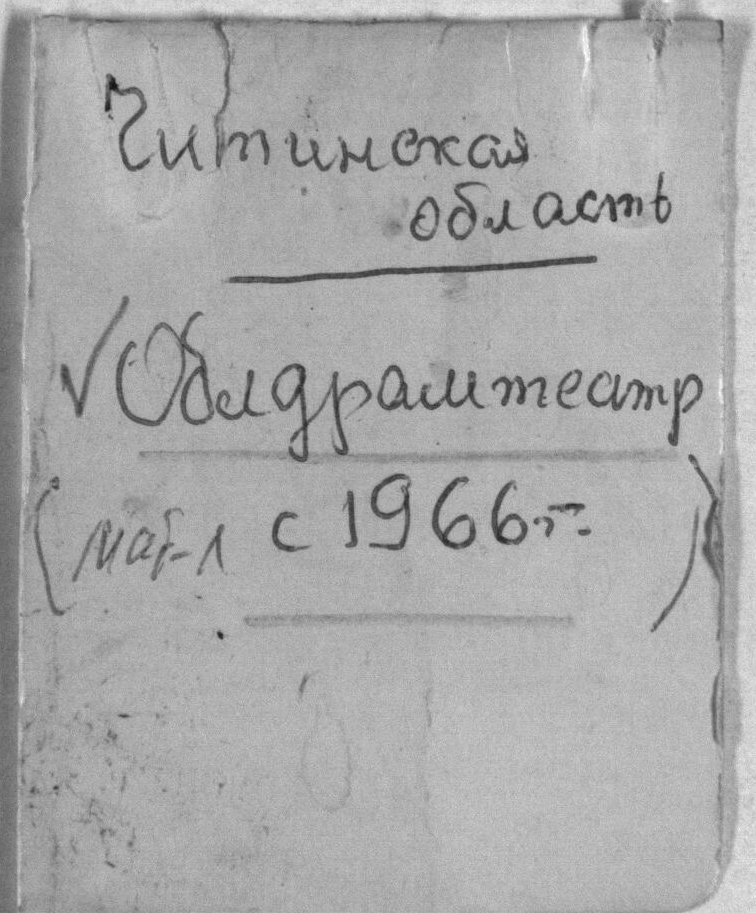 Читинская
область
√ Облдрамтеатр
(мат-л с 1966 г.)